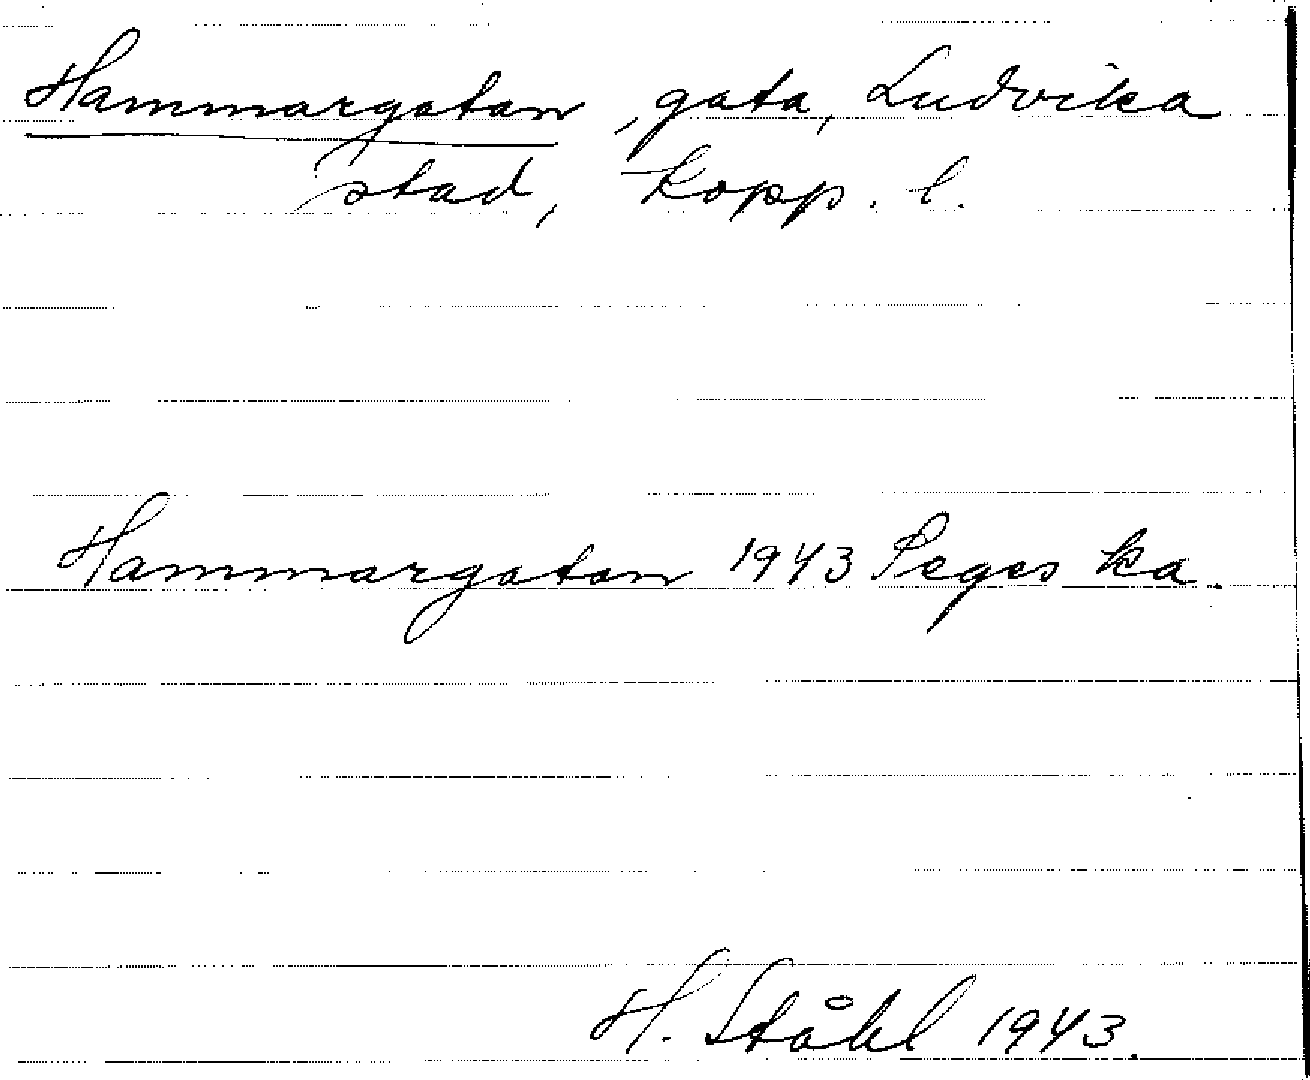 Hammargatan, gata, Ludvika
stad, Kopp. l.
Hammargatan 1943 Peges ka.
H. Ståhl 1943.